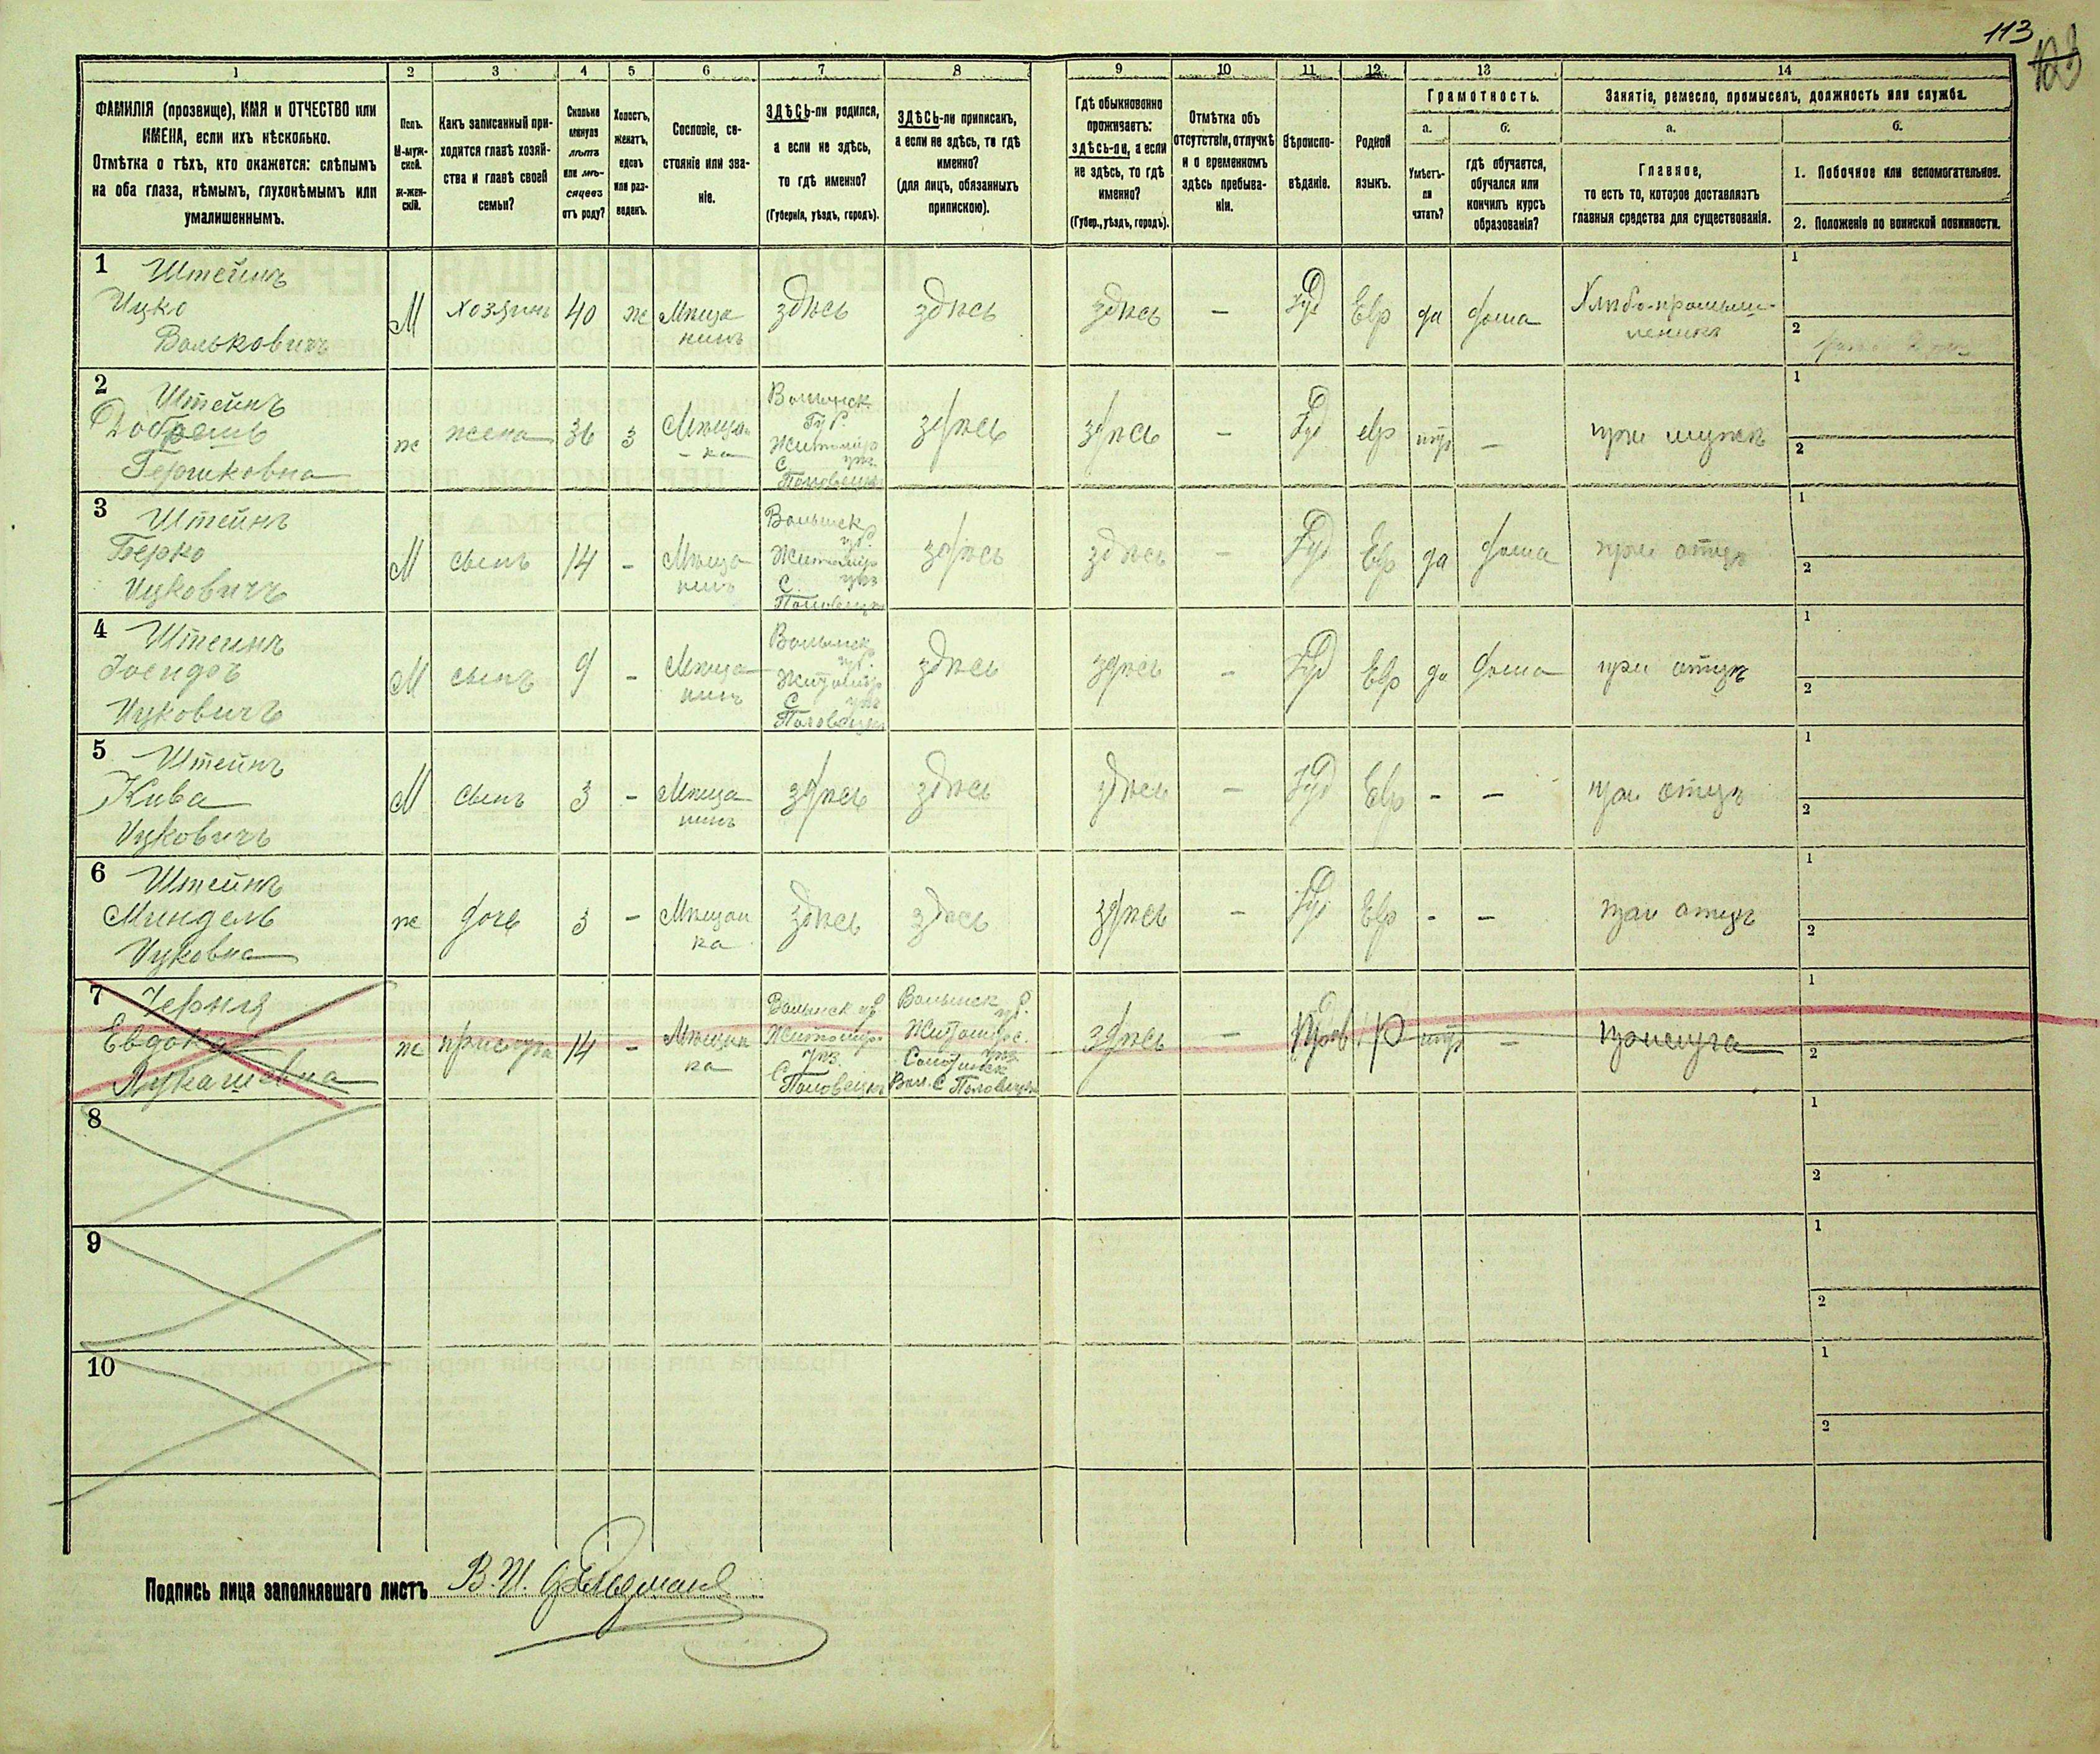 113
1 2 3 4 5 6 7 8 9 10 11 12 13 14
ФАМИЛІЯ (прозвище), ИМЯ и ОТЧЕСТВО или
ИМЕНА, если ихъ нѣсколько.
Отмѣтка о тѣхъ, кто окажется: слѣпымъ
на оба глаза, нѣмымъ, глухонѣмымъ или
умалишеннымъ.
Полъ.
М-муж-
ской.
ж-жен-
скій.
Какъ записанный при-
ходится главѣ хозяй-
ства и главѣ своей
семьи?
Сколько
минуло
лѣтъ
или мѣ-
сяцевъ
отъ роду?
Холостъ,
женатъ,
вдовъ
или раз-
веденъ.
Сословіе, со-
стояніе или зва-
ніе.
ЗДѢСЬ-ли родился,
а если не здѣсь,
то гдѣ именно?
(Губернія, уѣздъ, городъ).
ЗДѢСЬ-ли приписанъ,
а если не здѣсь, то гдѣ
именно?
(для лицъ, обязанныхъ
припискою).
Гдѣ обыкновенно
проживаетъ:
здѣсь-ли, а если
не здѣсь, то гдѣ
именно?
(Губер., уѣздъ, городъ).
Отмѣтка объ
отсутствіи, отлучкѣ
и о временномъ
здѣсь пребыва-
ніи.
Вѣроиспо-
вѣданіе.
Родной
языкъ.
Грамотность.
а.
Умѣетъ-
ли
читать?
б.
гдѣ обучается,
обучался или
кончилъ курсъ
образованія?
Занятіе, ремесло, промыселъ, должность или служба.
а.
Главное,
то есть то, которое доставляетъ
главныя средства для существованія.
б.
1. Побочное или вспомогательное.
2. Положеніе по воинской повинности.
1 Штейнъ
Ицко
Вольковичъ
М хозяинъ 40 ж Мѣща
нинъ
здѣсь здѣсь здѣсь – Іуд Евр да дома Хлѣбо-промыш-
ленникъ
1
2
2 Штейнъ
Добрешь
Гершковна
ж жена 36 з Мѣщан
-ка
Волынск
Губ.
Житомир
уѣз
С.
Половецк
здѣсь здѣсь – Іуд евр нѣт – при мужѣ
1
2
3 Штейнъ
Берко
Ицковичъ
М сынъ 14 – Мѣща
нинъ
Волынск
губ.
Житомир
С. уѣз
Половецк
здѣсь здѣсь – Іуд Евр да дома при отцѣ
1
2
4 Штейнъ
Ицковичъ
М сынъ 9 – Мѣща
нинъ
Волынск
губ.
Житомир
С. уѣз
Половецк
здѣсь здѣсь – Іуд Евр да дома при отцѣ
1
2
5 Штейнъ
Кива
Ицковичъ
М сынъ 3 – Мѣща
нинъ
здѣсь здѣсь здѣсь – Іуд Евр – – при отцѣ
1
2
6 Штейнъ
Миндель
Ицковна
ж дочь 3 – Мѣщан
ка
здѣсь здѣсь здѣсь – Іуд Евр – – при отцѣ
1
2
7 Черняя
Евдокія
Лукашевна
ж прислуга 14 – Мѣщан
ка
Волынск губ
Житомир.
уѣз.
С.
Половецк
Волынск
губ.
Житомирс.
уѣз.
Вол. С Половецк
здѣсь – Прав Р нѣт – прислуга
1
2
8
1
2
9
1
2
10
1
2
Подпись лица заполнявшаго листъ